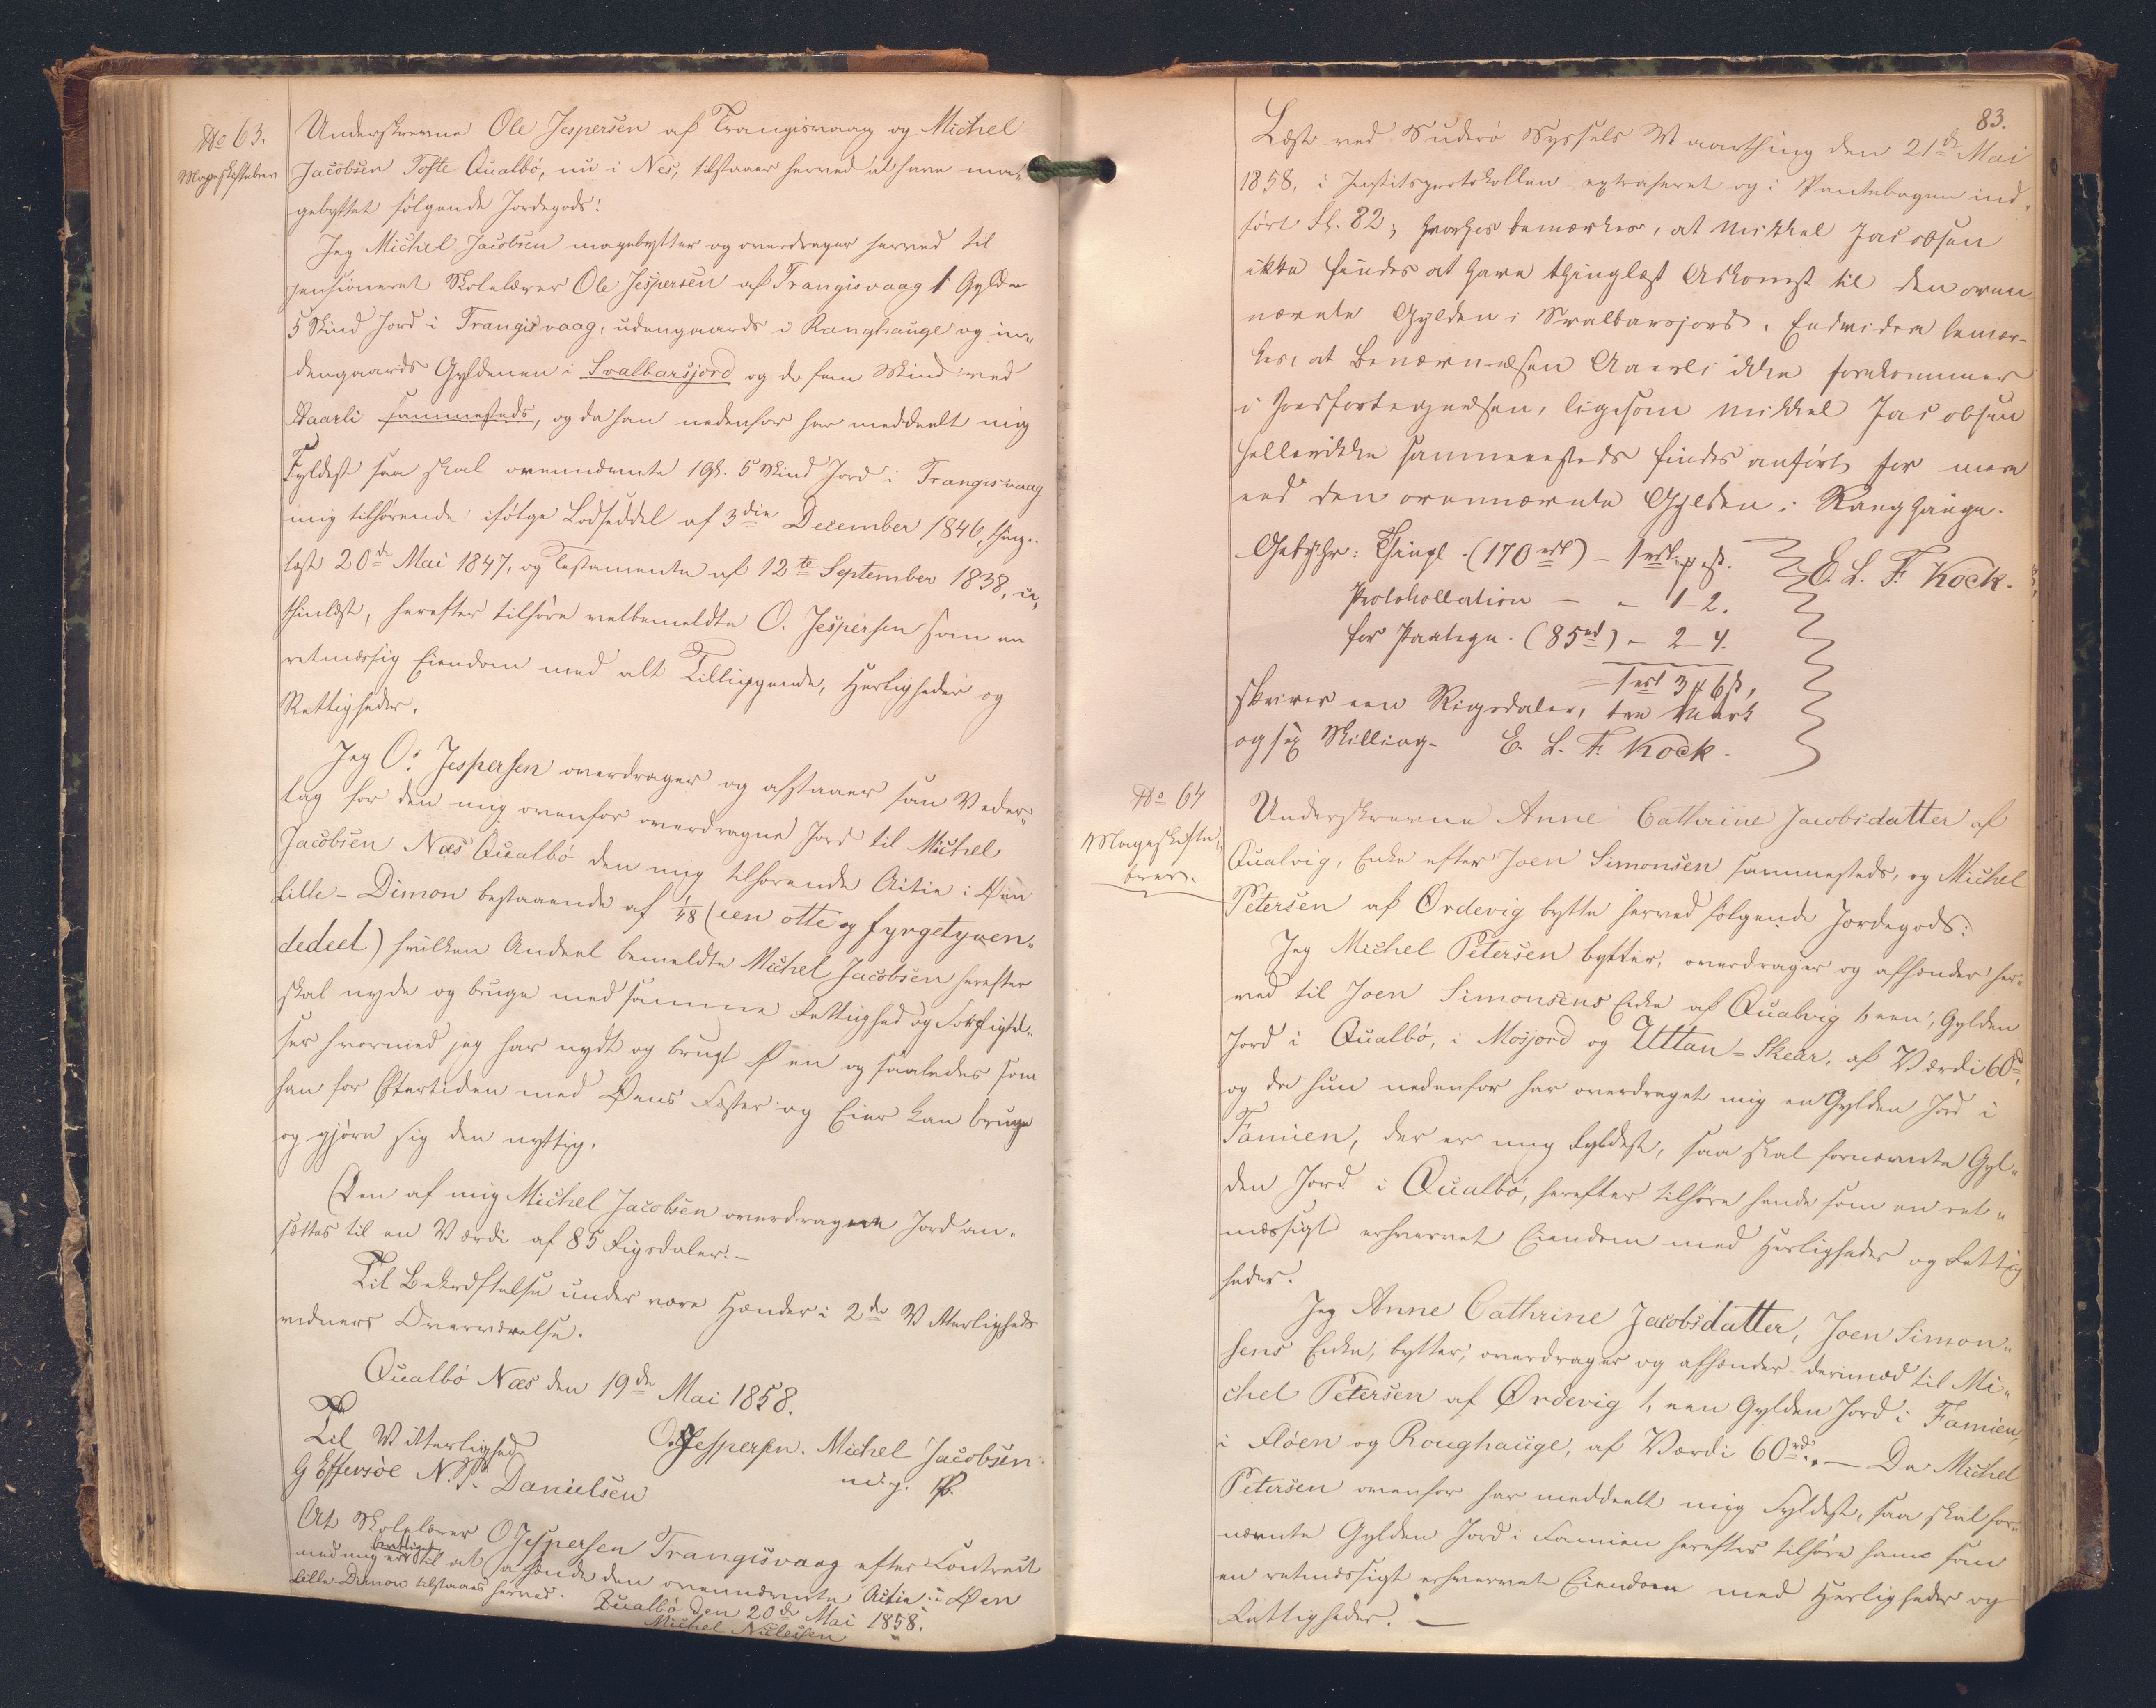 No 63.
Mageskiftebrev
Underskrevne Ole Jespersen af Trangisvaag og Michel
Jacobsen Tofte Qualbö, nu i Nes, tilstaaer herved at have ma„
gebyttet følgende Jordegods:
Jeg Michel Jacobsen magebytter og overdrager herved til
pensioneret Skolelærer Ole Jespersen af Trangisvaag 1 Gylden
5 Skind Jord i Trangisvaag, udengaards i Ranghauge og in„
dengaards Gyldenen i Svalbarsjord og de fem Skind ved
Aaarli sammesteds, og da han nedenfor har meddeelt mig
Fyldest saa skal ovennævnte 1 Gl. 5 Skind Jord i Trangisvaag
mig tilhørende ifølge Lodseddel af 3die December 1846, thing„
læst 20de Mai 1847, og Testamente af 12te September 1838, u„
thinlæst, herefter tilhøre velbemeldte O. Jespersen som en
retmæssig Eiendom med alt Tilliggende, Herligheder og
Rettigheder.
Jeg O. Jespersen overdrager og afstaaer som Veder„
lag for den mig ovenfor overdragne Jord til Michel
Jacobsen Næs Qualbö den mig tilhørende Actie i Øen
Lille-Dimon bestaaende af 1/48 (een otte og fyrgetyven„
dedeel) hvilken Andeel bemeldte Michel Jacobsen herefter
skal nyde og bruge med samme Rettighed og Forpligtel„
ser hvormed jeg har nydt og brugt Øen og saaledes som
han for Eftertiden med Øens Fæster og Eier kan bruge
og gjøre sig den nyttig.
Den af mig Michel Jacobsen overdragne Jord an„
sættes til en Værdi af 85 Rigsdaler.—
Til Bekræftelse under vore Hænder i 2de Vitterligheds
vidners Overværelse.
Qualbö Næs den 19de Mai 1858.
Til Vitterlighed
O. Jespersen. Michel Jacobsen
G Effersöe N. P. Danielsen
m. f. P.
At Skolelærer O Jespersen Trangisvaag efter Contract
med mig er berettiget til at afhænde den ovennævnte Actie i Øen
Lille-Dimon tilstaaes herved. Qualbö den 20de Mai 1858.
Michel Nielsen
83.
Læst ved Suderö Syssels Vaarthing den 21de Mai
1858, i Justitsprotokollen extraheret og i Pantebogen ind„
ført Fl. 82; hvorhos bemærkes, at Mikkel Jacobsen
ikke findes at have thinglæst Adkomst til den oven
nævnte Gylden i Svalbarsjord. Endvidere bemær-
kes, at Benævnelsen Aaarli ikke forekommer
i Jordfortegnelsen, ligesom Mikkel Jacobsen
hellerikke sammesteds findes anført for mere
end den ovennævnte Gylden i Ranghauge.
Gebyhr: Thingl. (170 rd) – 1 rd „ „ ß.
E. L. F. Kock.
Protokollation – „ 1 – 2.
for Paategn. (85 rd) – 2 – 4.
= 1 rd 3 # 6 ß,
skriver een Rigsdaler, tre Mark
og sex Skilling. E. L. F. Kock.
No 64
Mageskifte„
brev.
Underskrevne Anne Cathrine Jacobsdatter af
Qualvig, Enke efter Joen Simonsen sammesteds, og Michel
Petersen af Ørdevig bytte herved følgende Jordegods:
Jeg Michel Petersen bytter, overdrager og afhænder her„
ved til Joen Simonsens Enke af Qualvig 1, een, Gylden
Jord i Qualbö, i Mosjord og Uttan-Skear, af Værdi 60 rd,
og da hun nedenfor har overdraget mig en Gylden Jord i
Famien, der er mig Fyldest, saa skal fornævnte Gyl„
den Jord i Qualbö, herefter tilhøre hende som en ret„
mæssigt erhvervet Eiendom med Herligheder og Rettig
heder.
Jeg Anne Cathrine Jacobsdatter, Joen Simon„
sens Enke, bytter, overdrager og afhænder derimod til Mi„
chel Petersen af Ørdevig 1, een Gylden Jord i Famien,
i Flöen og Roughauge, af Værdi 60 rd. — Da Michel
Petersen ovenfor har meddeelt mig Fyldest, saa skal for„
nævnte Gylden Jord i Famien herefter tilhøre ham som
en retmæssigt erhvervet Eiendom med Herligheder og
Rettigheder. —